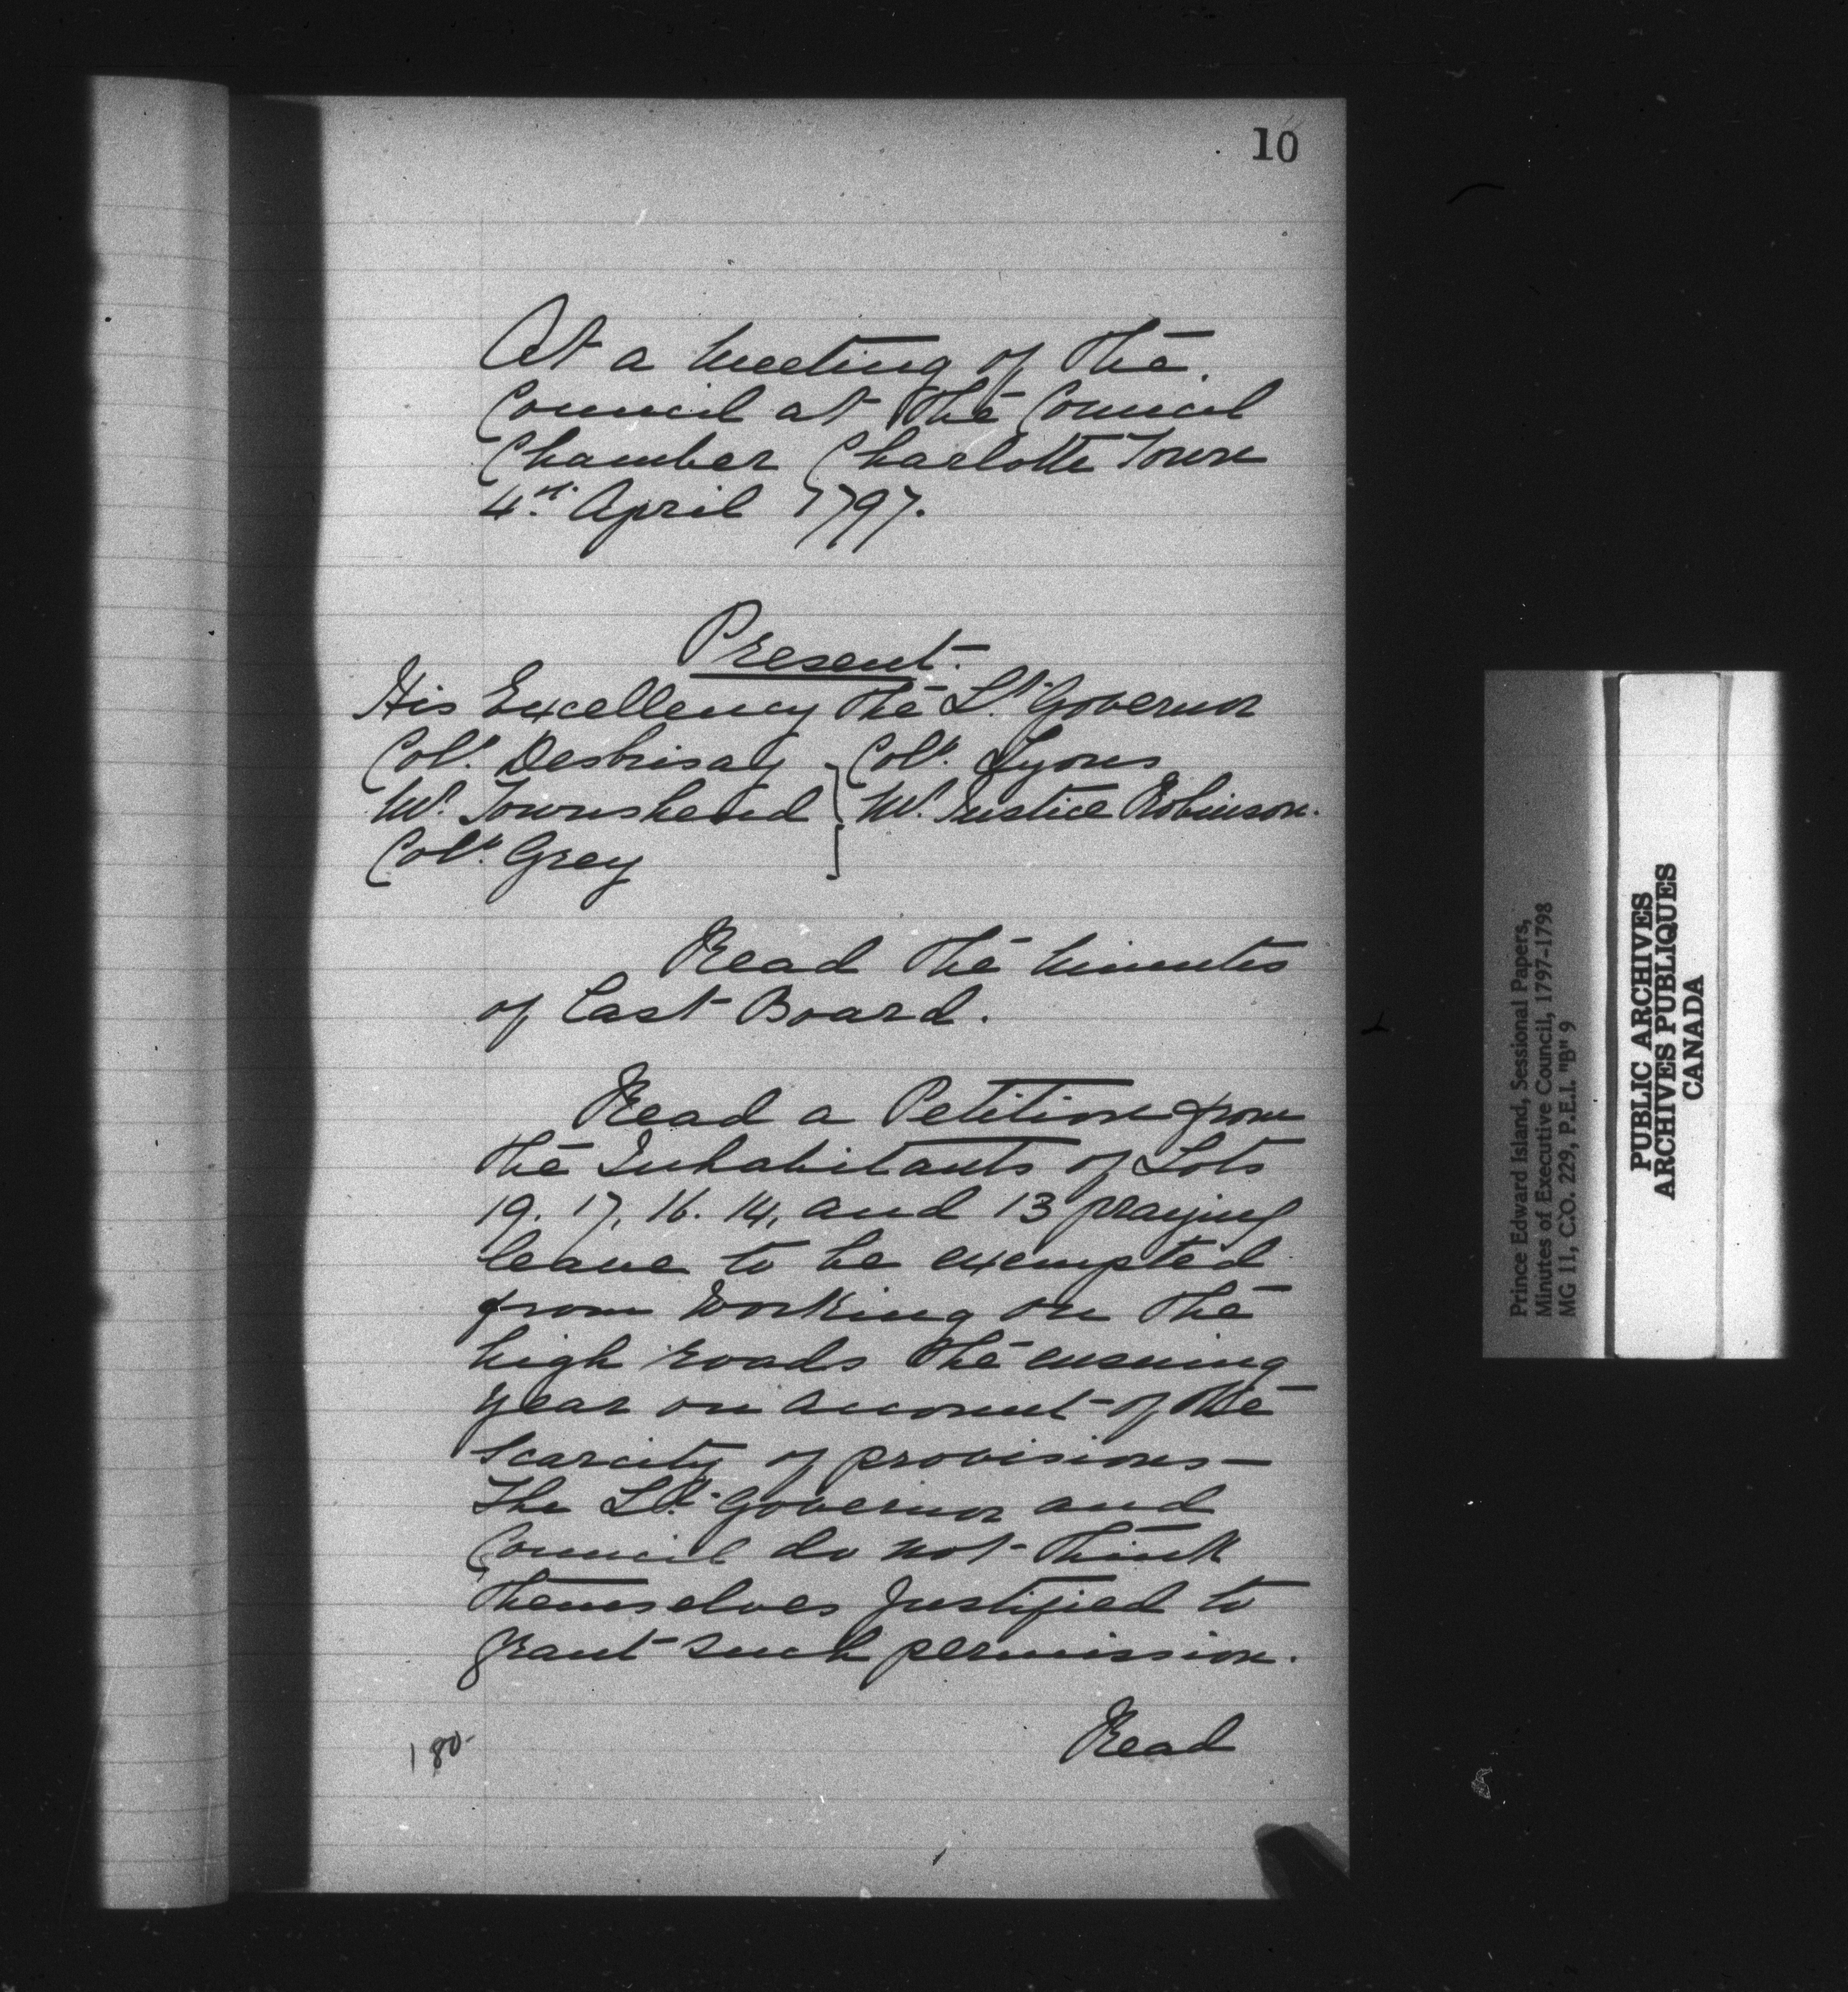 10
At a meeting of the
Council at the Council
Chamber Charlotte Town
4th April 1797.
Present.
His Excellency the Lt. Governor
Coll. Desbrisay
Mr. Townshend
Coll. Grey
Coll. Lyons
Mr. Justice Robinson.
Read the minutes
of Last Board.
Read a Petition from
the Inhabitants of Lots
19. 17. 16. 14, and 13 praying
leave to be exempted
from working on the
high roads the ensuing
year on account of the
scarcity of provisions—
The Lt. Governor and
Council do not think
themselves justified to
grant such permission.
Read
180
Prince Edward Island, Sessional Papers,
Minutes of Executive Council, 1797-1798
MG 11, C.O. 229, P.E.I. "B" 9
PUBLIC ARCHIVES
ARCHIVES PUBLIQUES
CANADA